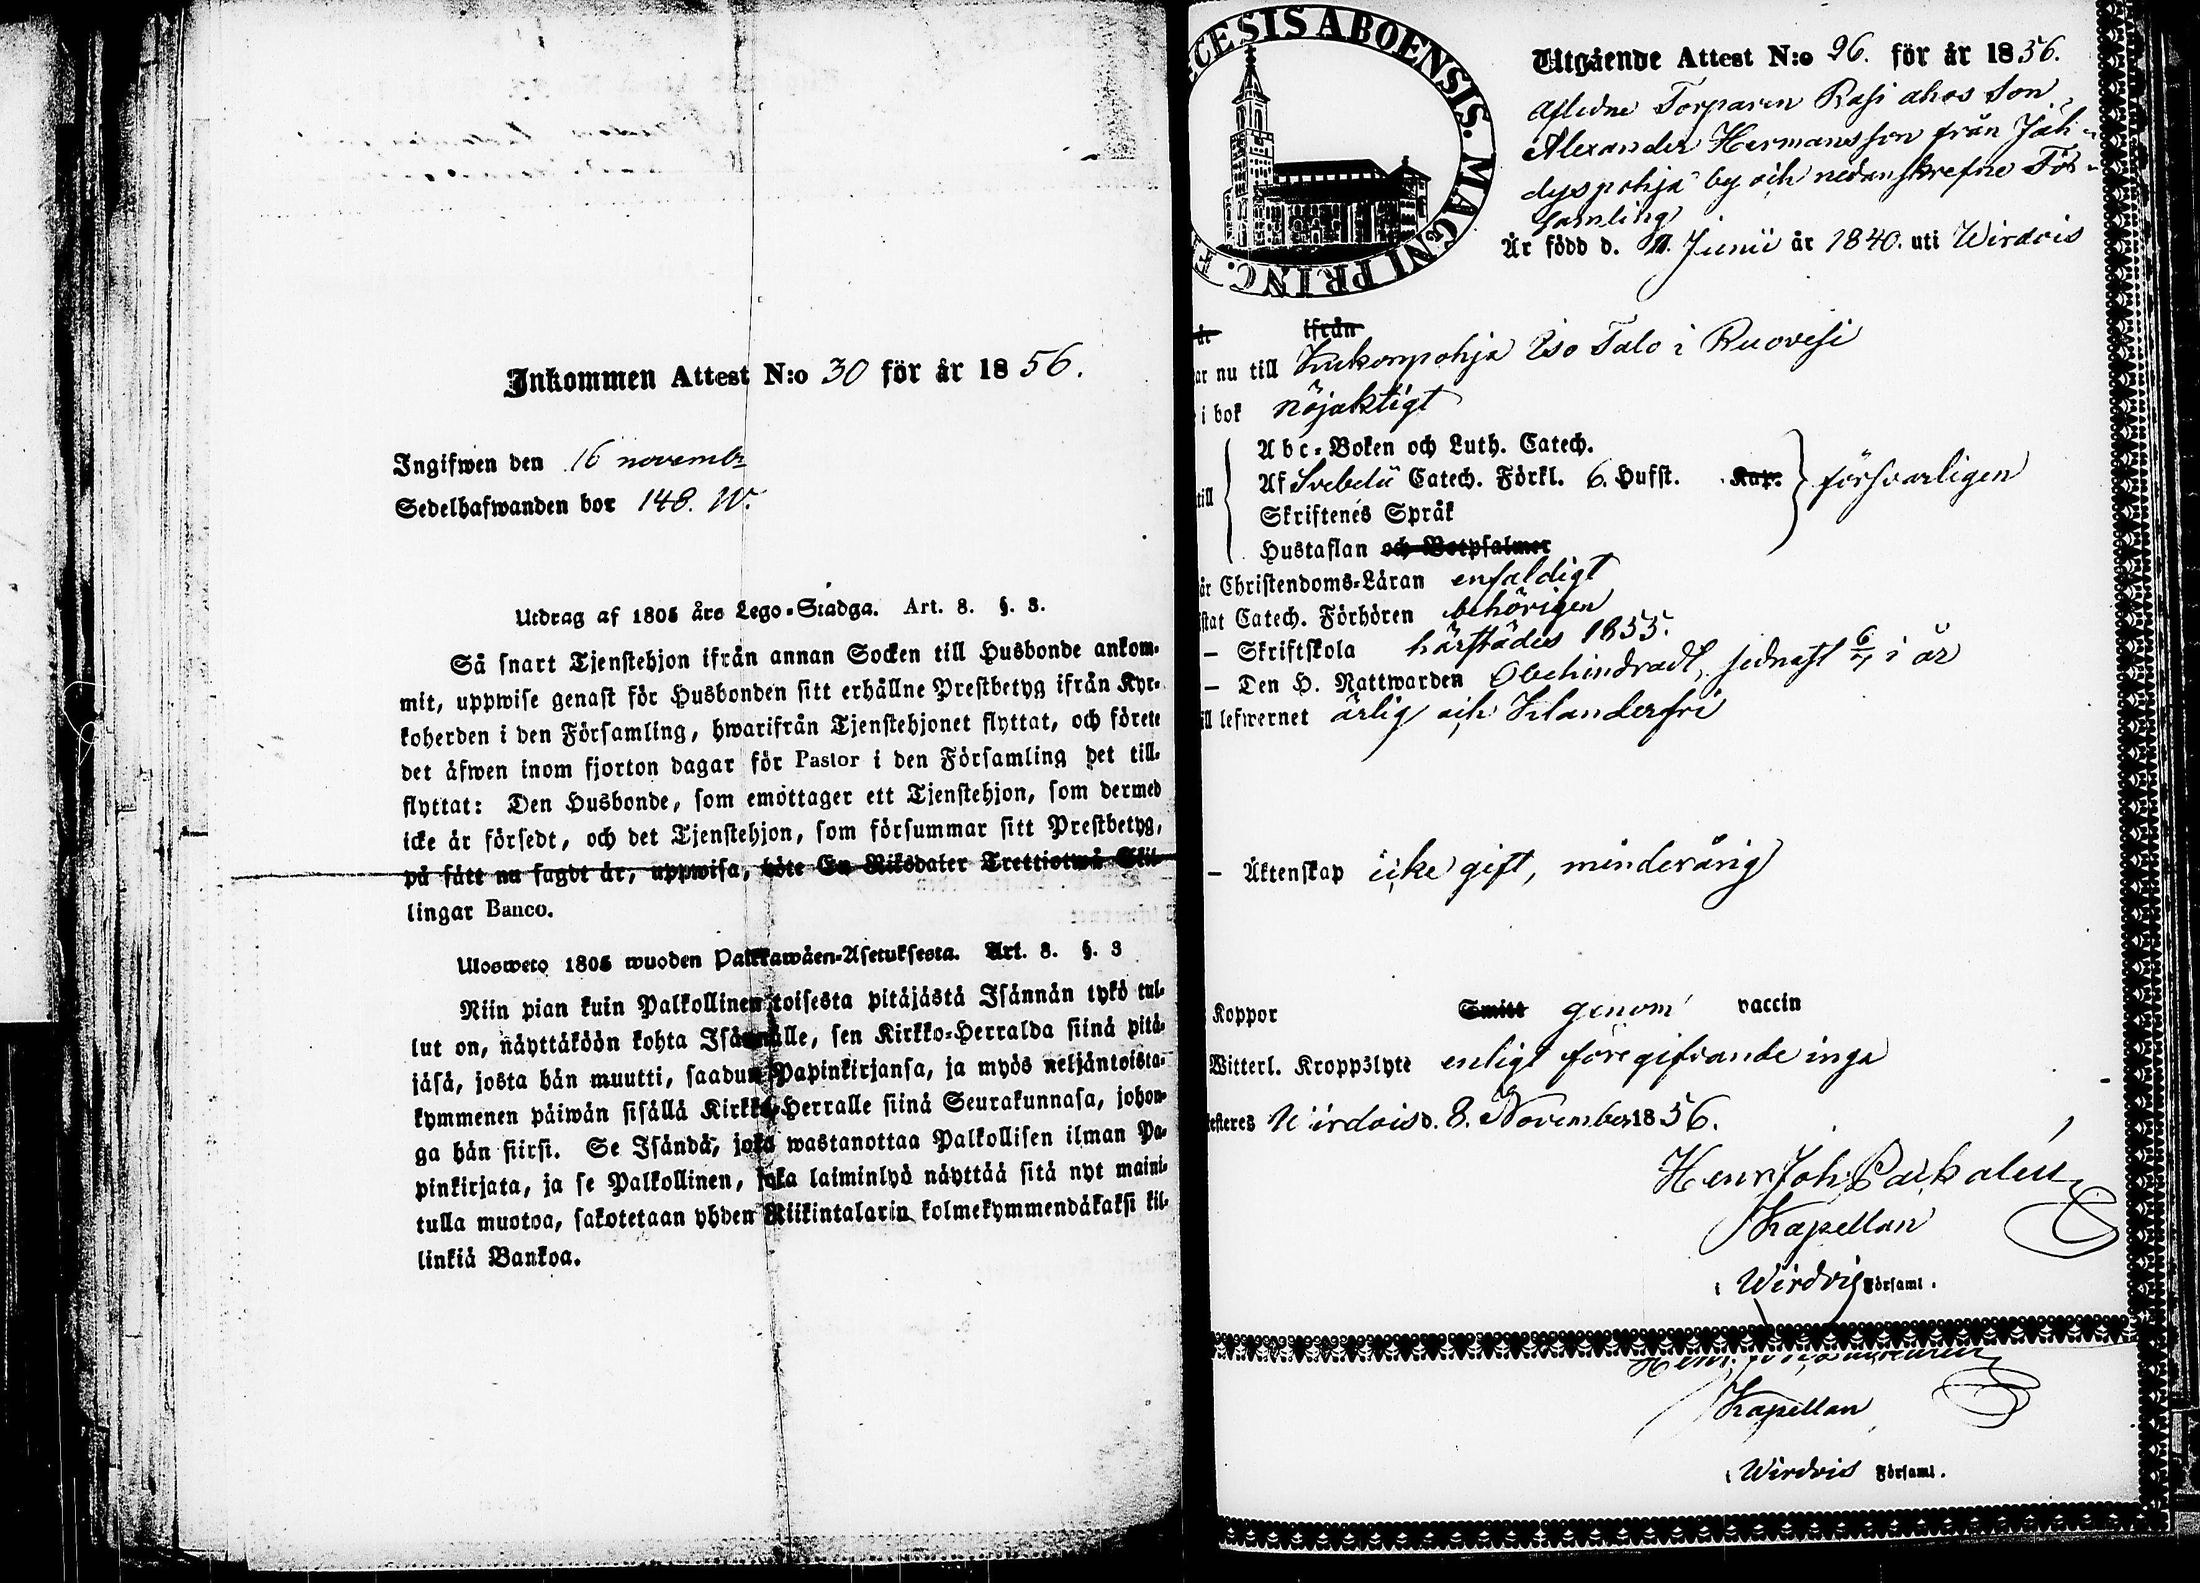 Inkommen Attest N:o 30 för år 1856.
Ingifwen den 16 novembr
Sedelhafwanden bor 148. W.
Utdrag af 1805 års Lego-Stadga. Art. 8. §. 3.
Så snart Tjenstehjon ifrån annan Socken till Husbonde ankom-
mit, uppwise genast för Husbonden sitt erhållne Prestbetyg ifrån Kyr-
koherden i den Församling, hwarifrån Tjenstehjonet flyttat, och förete
det äfwen inom fjorton dagar för Pastor i den Församling det till-
flyttat: Den Husbonde, som emottager ett Tjenstehjon, som dermed
icke är försedt, och det Tjenstehjon, som försummar sitt Prestbetyg,
på sätt nu sagdt är, uppwisa, böte En Riksdaler Trettiotwå Skil-
lingar Banco.
Ulosweto 1805 wuoden Palkkawäen-Asetuksesta. Art. 8. §. 3
Niin pian kuin Palkollinen toisesta pitäjästä Isännän tykö tul-
lut on, näyttäköön kohta Isännälle, sen Kirkko-Herralda siinä pitä-
jäsä, josta hän muutti, saadun Papinkirjansa, ja myös neljäntoista-
kymmenen päiwän sisällä Kirkko-Herralle siinä Seurakunnasa, johon-
ga hän siirsi. Se Isändä, joka wastanottaa Palkollisen ilman Pa-
pinkirjata, ja se Palkollinen, joka laiminlyö näyttää sitä nyt maini-
tulla muotoa, sakotetaan yhden Riikintalarin kolmekymmendäkaksi kil-
linkiä Bankoa.
ECESIS ABOENSIS. MAGNI PRINC. F
Utgående Attest N:o 96. för år 1856.
Aflidne Torparen Rasi ahos Son
Alexander Hermansson från Jäh-
dyspohja by och nedanskrefne För-
samling
Är född d. 11. Junii år 1840. uti Wirdois
år ifrån
ar nu till Kukonpohja Iso Talo i Ruovesi
i bok nöjaktigt
Abc-Boken och Luth. Catech.
till Af Svebelii Catech. Förkl. 6. Hufst. Kap. försvarligen
Skriftenes Språk
Hustaflan och Botpsalmer
år Christendoms-Läran enfaldigt
stat Catech. Förhören behörigen
– Skriftskola härstädes 1855.
– Den H. Nattwarden Obehindradt, sednast 6/7 i år
ll lefwernet ärlig och Klanderfri
– Äktenskap icke gift, minderårig
Koppor Smitt genom vaccin
Witterl. Kroppslyte enligt föregifvande inga
esteres Wirdois d. 8. November 1856.
Henr Joh
Kapellan
i Wirdois Församl.
Kapellan
i Wirdois Församl.